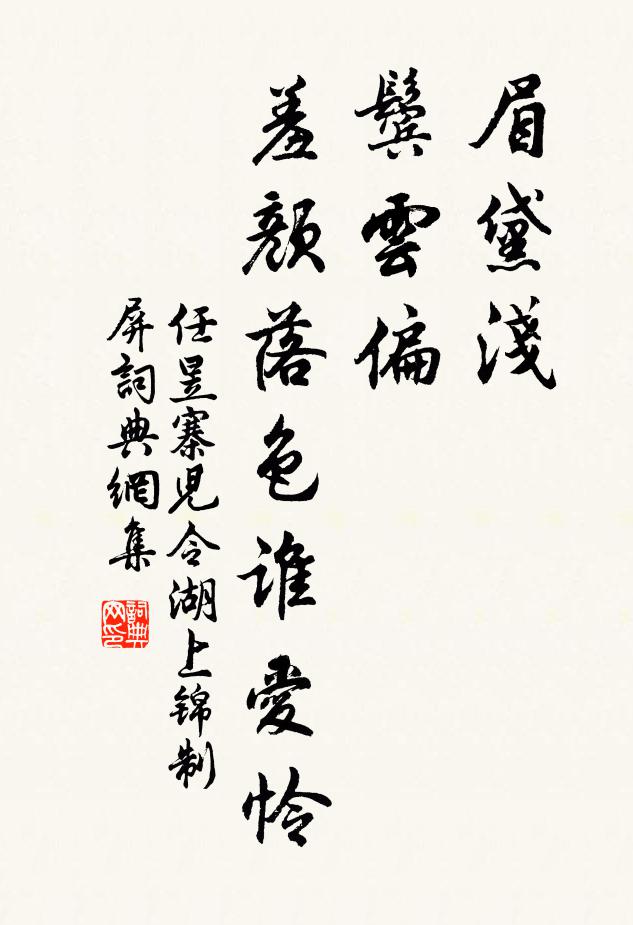 眉黛淺
鬢雲偏
羞顏落色誰愛怜
任昱寨児令湖上錦制
屏詞典網集
詞典网印